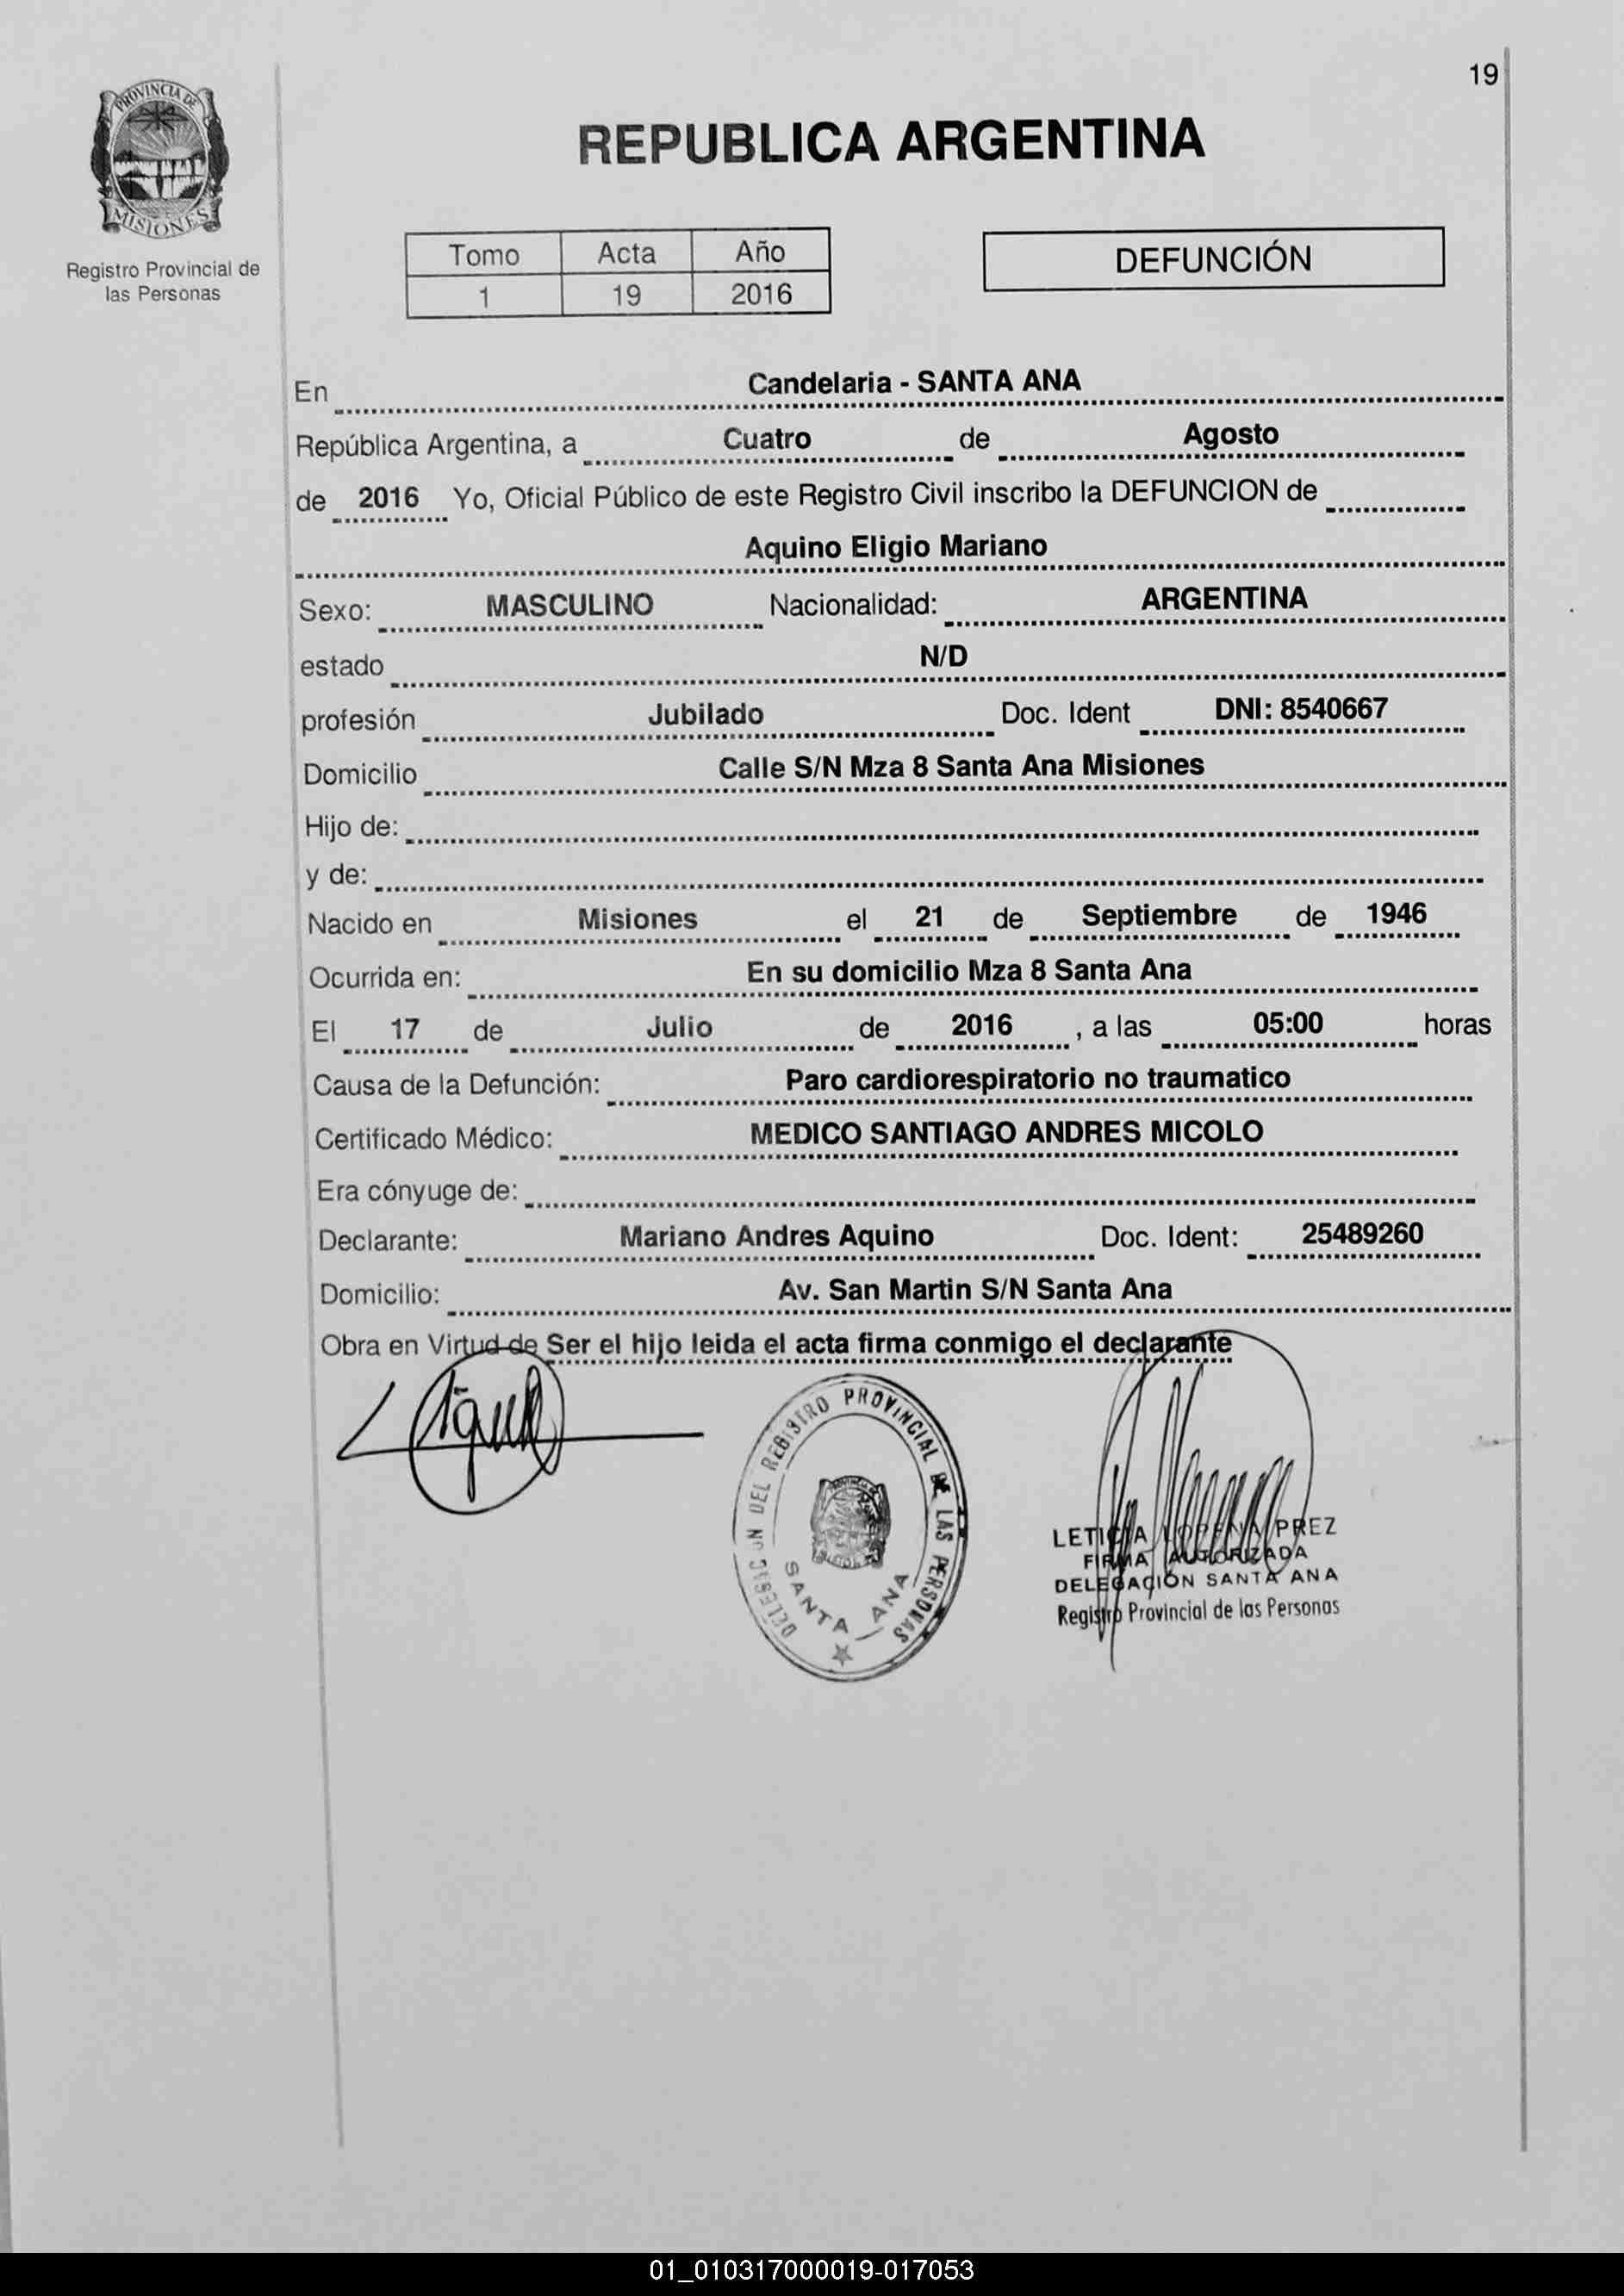 19
PROVINCIA DE
MISIONES
Registro Provincial de
las Personas
REPUBLICA ARGENTINA
Tomo Acta Año
1 19 2016
DEFUNCIÓN
En Candelaria - SANTA ANA
República Argentina, a Cuatro de Agosto
de 2016 Yo, Oficial Público de este Registro Civil inscribo la DEFUNCION de
Aquino Eligio Mariano
Sexo: MASCULINO Nacionalidad: ARGENTINA
estado N/D
profesión Jubilado Doc. Ident DNI: 8540667
Domicilio Calle S/N Mza 8 Santa Ana Misiones
Hijo de:
y de:
Nacido en Misiones el 21 de Septiembre de 1946
Ocurrida en: En su domicilio Mza 8 Santa Ana
El 17 de Julio de 2016 , a las 05:00 horas
Causa de la Defunción: Paro cardiorespiratorio no traumatico
Certificado Médico: MEDICO SANTIAGO ANDRES MICOLO
Era cónyuge de:
Declarante: Mariano Andres Aquino Doc. Ident: 25489260
Domicilio: Av. San Martin S/N Santa Ana
Obra en Virtud de Ser el hijo leida el acta firma conmigo el declarante
DEL REGISTRO PROVINCIAL DE LAS PERSONAS
SANTA ANA
LETICIA LORENA PREZ
FIRMA AUTORIZADA
DELEGACIÓN SANTA ANA
Registro Provincial de las Personas
01_010317000019-017053